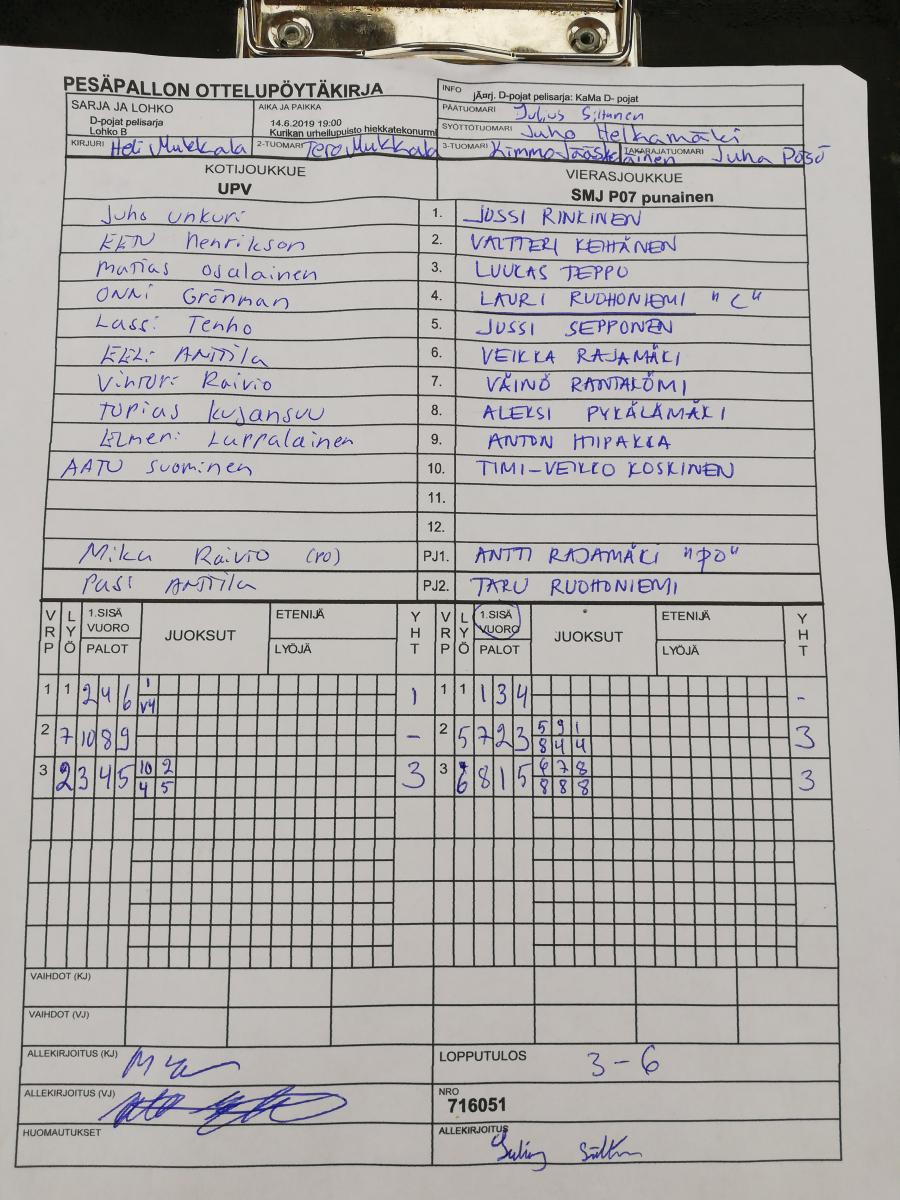 PESÄPALLON OTTELUPÖYTÄKIRJA
SARJA JA LOHKO
D-pojat pelisarja
Lohko B
AIKA JA PAIKKA
14.6.2019 19:00
Kurikan urheilupuisto hiekkatekonurmi
INFO jÃ¤rj. D-pojat pelisarja: KaMa D- pojat
PÄÄTUOMARI Julius Siltanen
SYÖTTÖTUOMARI Juho Helkamäki
KIRJURI Heli Mukkala 2-TUOMARI Tero Mukkala 3-TUOMARI Kimmo Jääskeläinen TAKARAJATUOMARI Juha Pösö
KOTIJOUKKUE
UPV
VIERASJOUKKUE
SMJ P07 punainen
Juho Unkuri 1. JUSSI RINKINEN
EETU Henrikson 2. VALTTERI KEIHÄNEN
Matias Osalainen 3. LUUKAS TEPPO
ONNI Grönman 4. LAURI RUOHONIEMI "C"
Lassi Tenho 5. JUSSI SEPPONEN
EELI ANTTILA 6. VEIKKA RAJAMÄKI
Vihtori Raivio 7. VÄINÖ RANTALÖMI
Topias Kujansuu 8. ALEKSI PYKÄLÄMÄKI
Elmeri Lurppalainen 9. ANTON HIIPAKKA
AATU Suominen 10. TIMI-VEIKKO KOSKINEN
11.
12.
Mika Raivio (PO) PJ1. ANTTI RAJAMÄKI "PO"
Pasi ANTTILA PJ2. TARU RUOHONIEMI
VRP LYÖ 1.SISÄ VUORO PALOT JUOKSUT ETENIJÄ LYÖJÄ YHT VRP LYÖ 1.SISÄ VUORO PALOT JUOKSUT ETENIJÄ LYÖJÄ YHT
1 1 2 4 6 1 1 1 1 1 3 4 -
V4
2 7 10 8 9 - 2 5 7 2 3 5 9 1 3
8 4 4
3 2 3 4 5 10 2 3 3 6 8 1 5 6 7 8 3
4 5 8 8 8
VAIHDOT (KJ)
VAIHDOT (VJ)
ALLEKIRJOITUS (KJ)
LOPPUTULOS 3-6
ALLEKIRJOITUS (VJ)
NRO
716051
HUOMAUTUKSET
ALLEKIRJOITUS